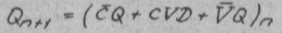 Qₙ₊₁ = (C̄Q + CVD + V̄Q)ₙ